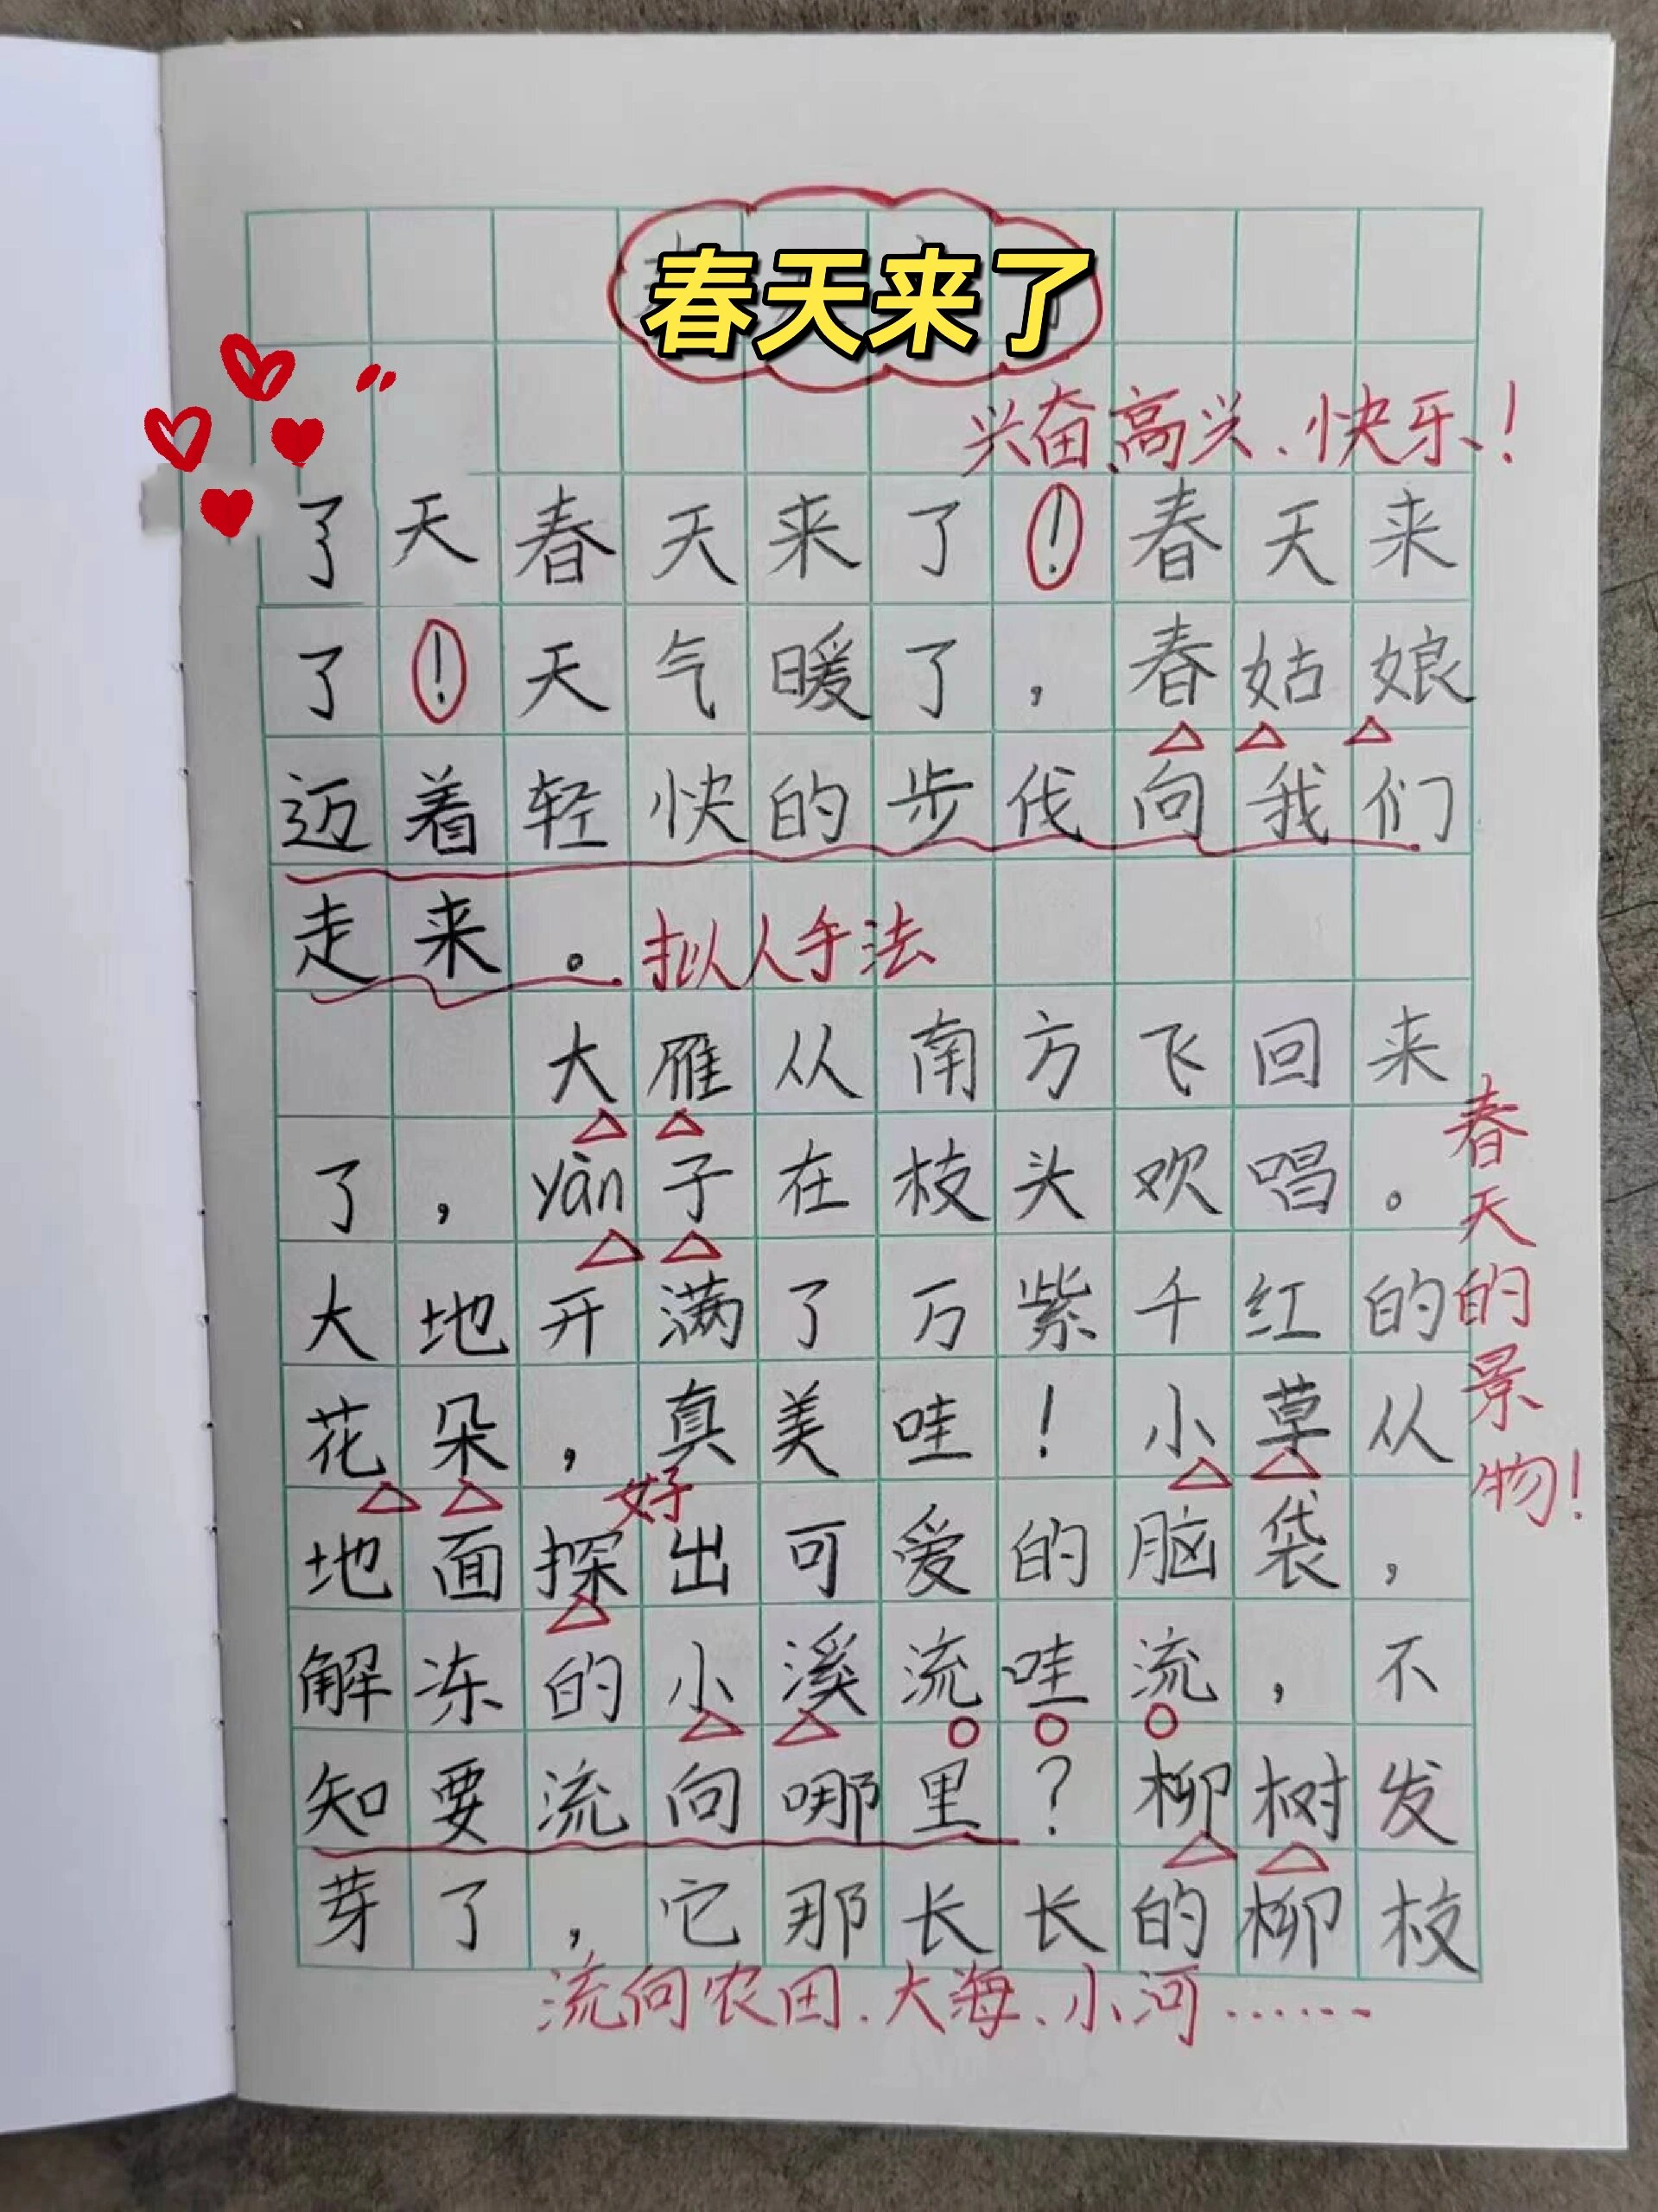 春天来了
兴奋、高兴、快乐、!
了天春天来了!春天来
了!天气暖了,春姑娘
迈着轻快的步伐向我们
走来。拟人手法
大雁从南方飞回来
了,yàn子在枝头欢唱。
大地开满了万紫千红的
花朵,真美哇!小草从
好
地面探出可爱的脑袋,
解冻的小溪流哇流,不
知要流向哪里?柳树发
芽了,它那长长的柳枝
流向农田、大海、小河……
春天的景物!